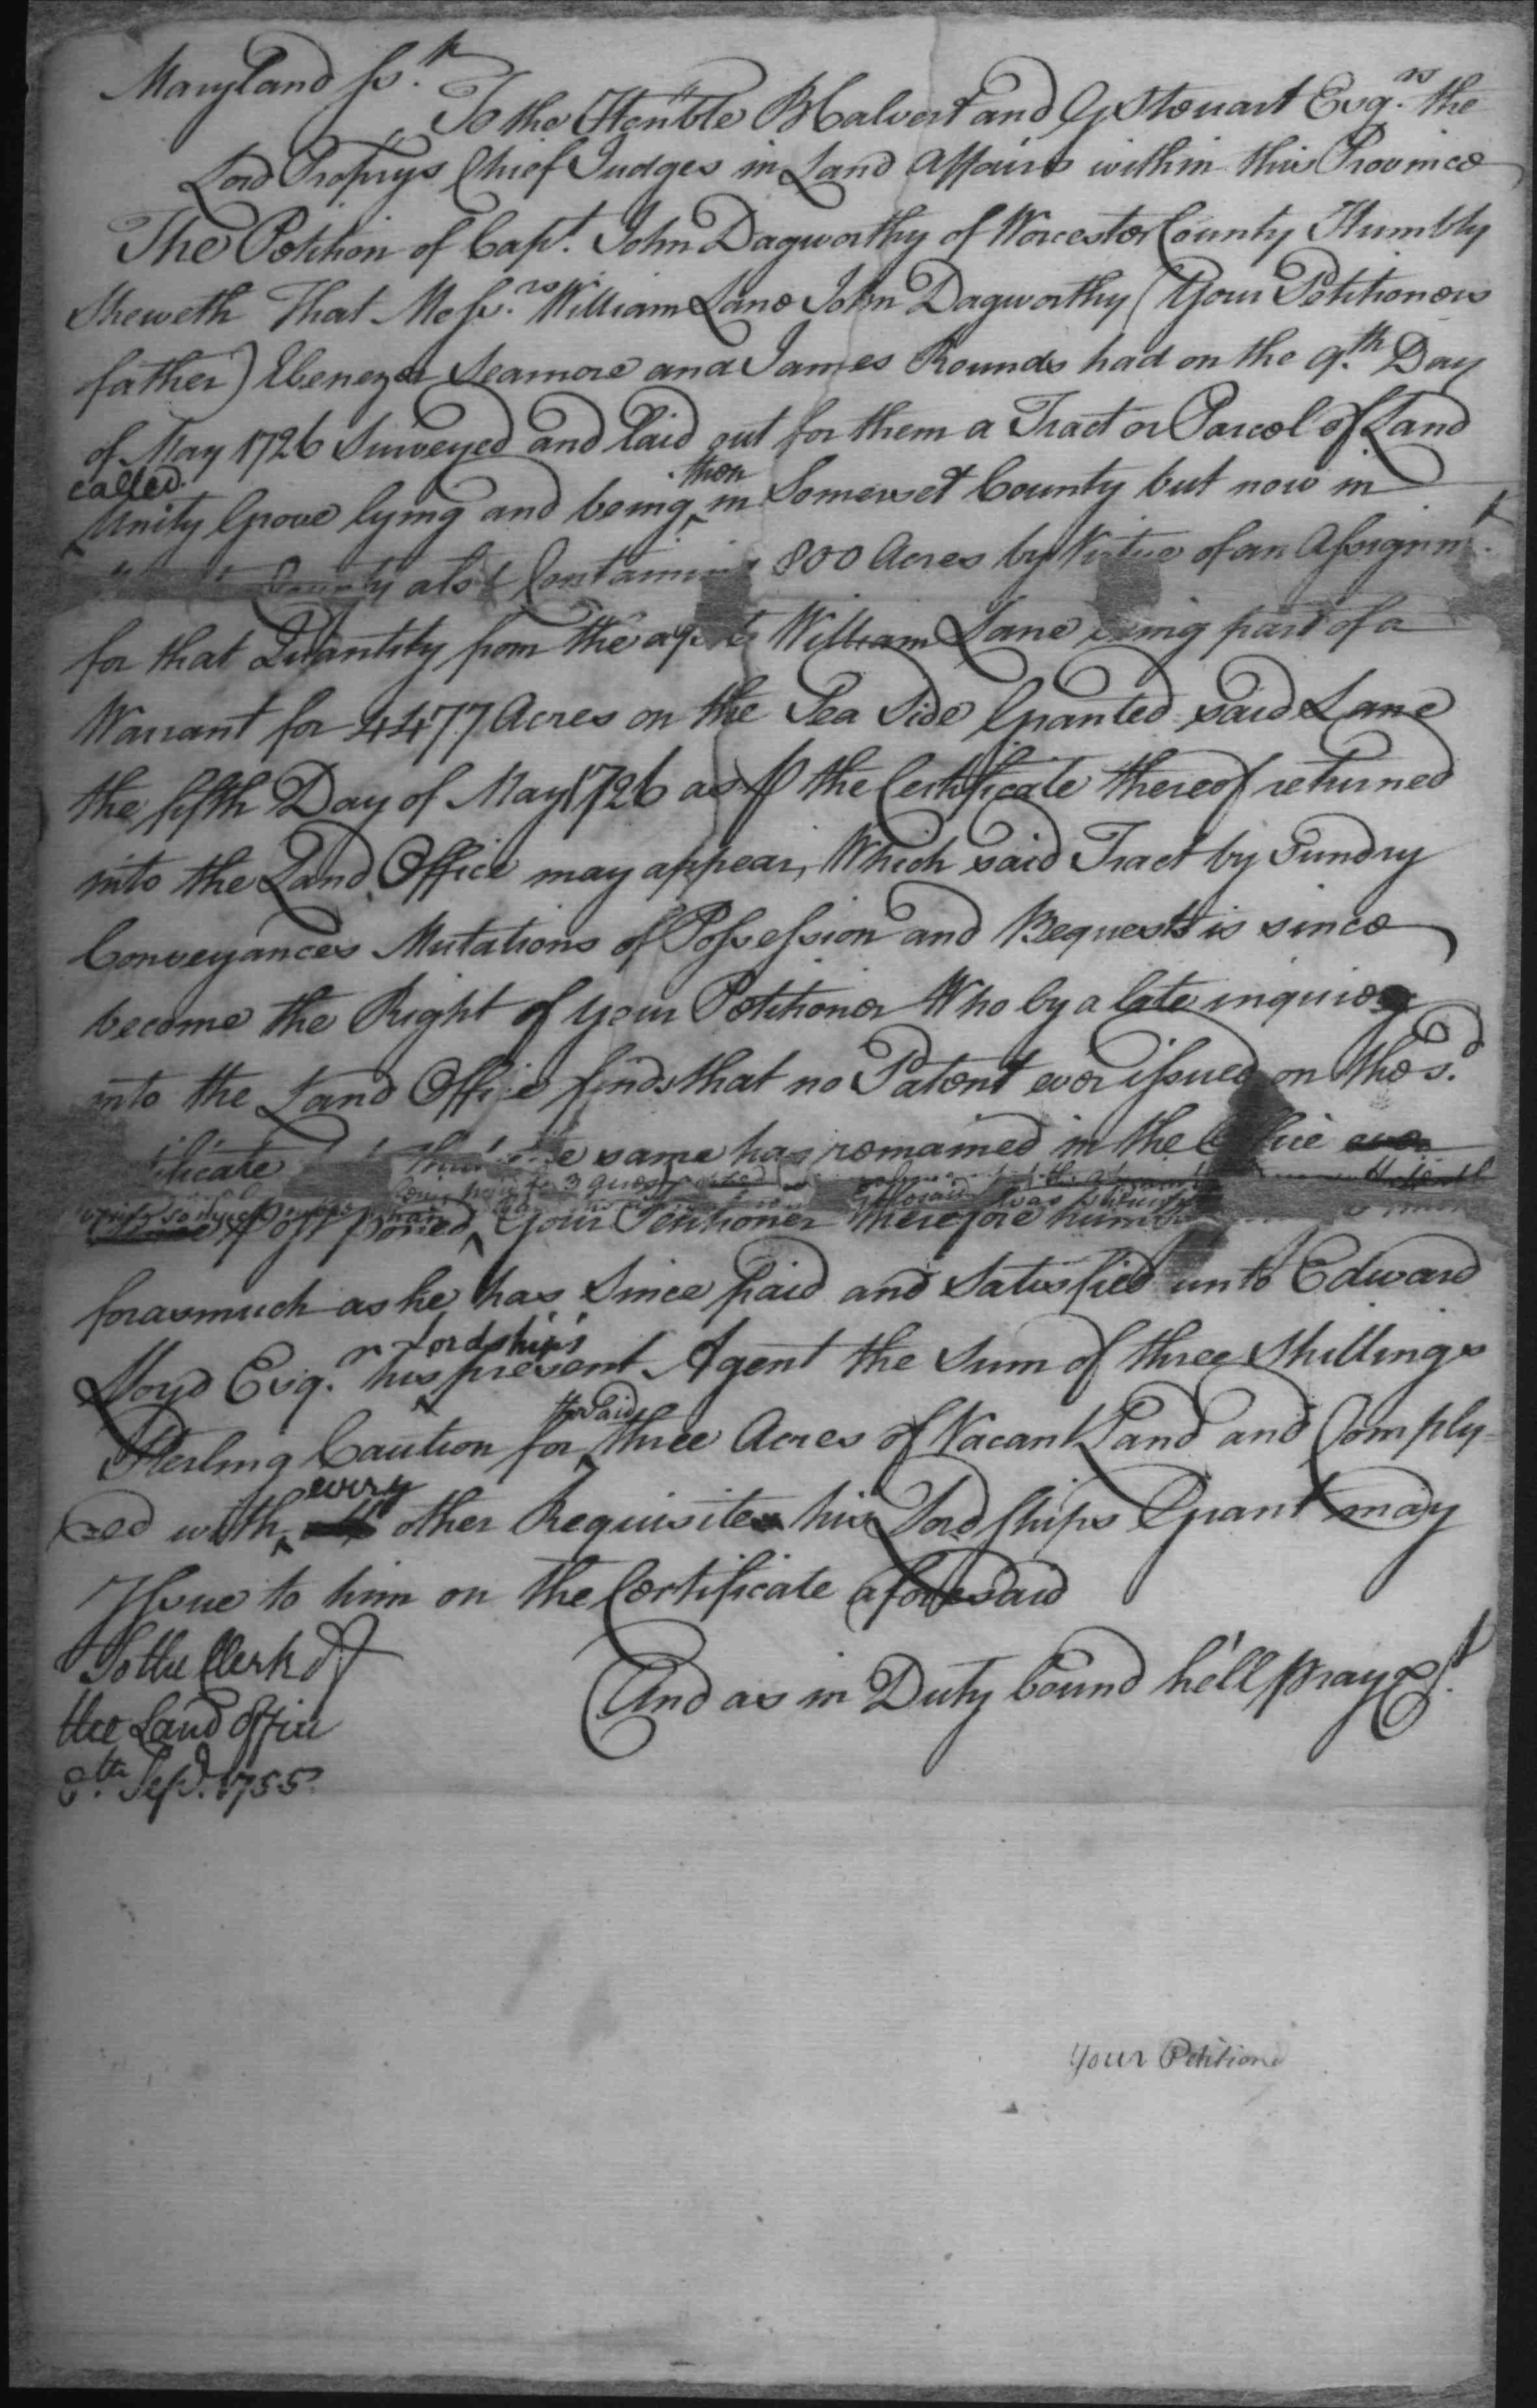 Maryland ss.t
To the Hon'ble B Calvert and G Steuart Esq.rs the
Lord Proprys Chief Judges in Land Affairs within this Province
The Petition of Capt. John Dagworthy of Worcester County Humbly
Sheweth That Mess.rs William Lane John Dagworthy (Your Petitioners
father) Ebenezer Seamore and James Rounds had on the 9.th Day
of May 1726 Surveyed and laid out for them a Tract or Parcel of Land
called then
Unity Grove lying and being in Somerset County but now in
County afs.d Containing 800 Acres by Virtue of an Assignm.t
for that Quantity from the William Lane being part of a
Warrant for 4477 Acres on the Sea Side Granted said Lane
the fifth Day of May 1726 as P the Certificate thereof returned
into the Land Office may appear, Which said Tract by Sundry
Conveyances Mutations of Possession and Bequests is since
become the Right of your Petitioner Who by a late inquiery
into the Land Office finds that no Patent ever issued on the s.d
same has remained in the
for 3 Acres
postponed, Your Petitioner therefore
forasmuch as he has Since paid and Satisfied unto Edward
Lordship's
Lloyd Esq.r his present Agent the Sum of three Shillings
the said
Sterling Caution for three Acres of Vacant Land and Comply-
every
=ed with other Requisite his Lordships Grant may
Issue to him on the Certificate aforesaid
To the Clerk of
the Land Office
8.th Sep.r 1755
And as in Duty bound he'll pray &c.t
Your Petitione